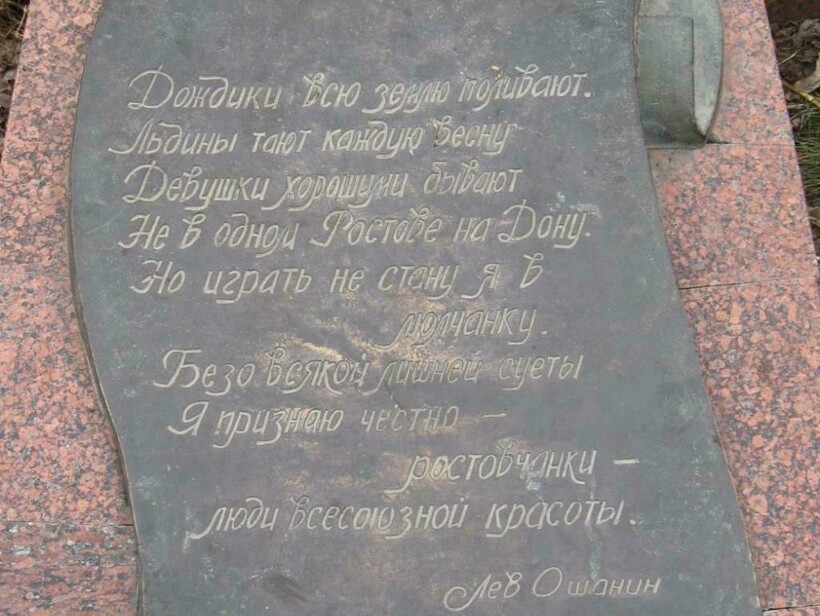 Дождики всю землю поливают.
Льдины тают каждую весну
Девушки хорошими бывают
Не в одном Ростове на Дону.
Но играть не стану я в
молчанку.
Безо всякой лишней суеты
Я признаю честно —
ростовчанки —
люди всесоюзной красоты.
Лев Ошанин